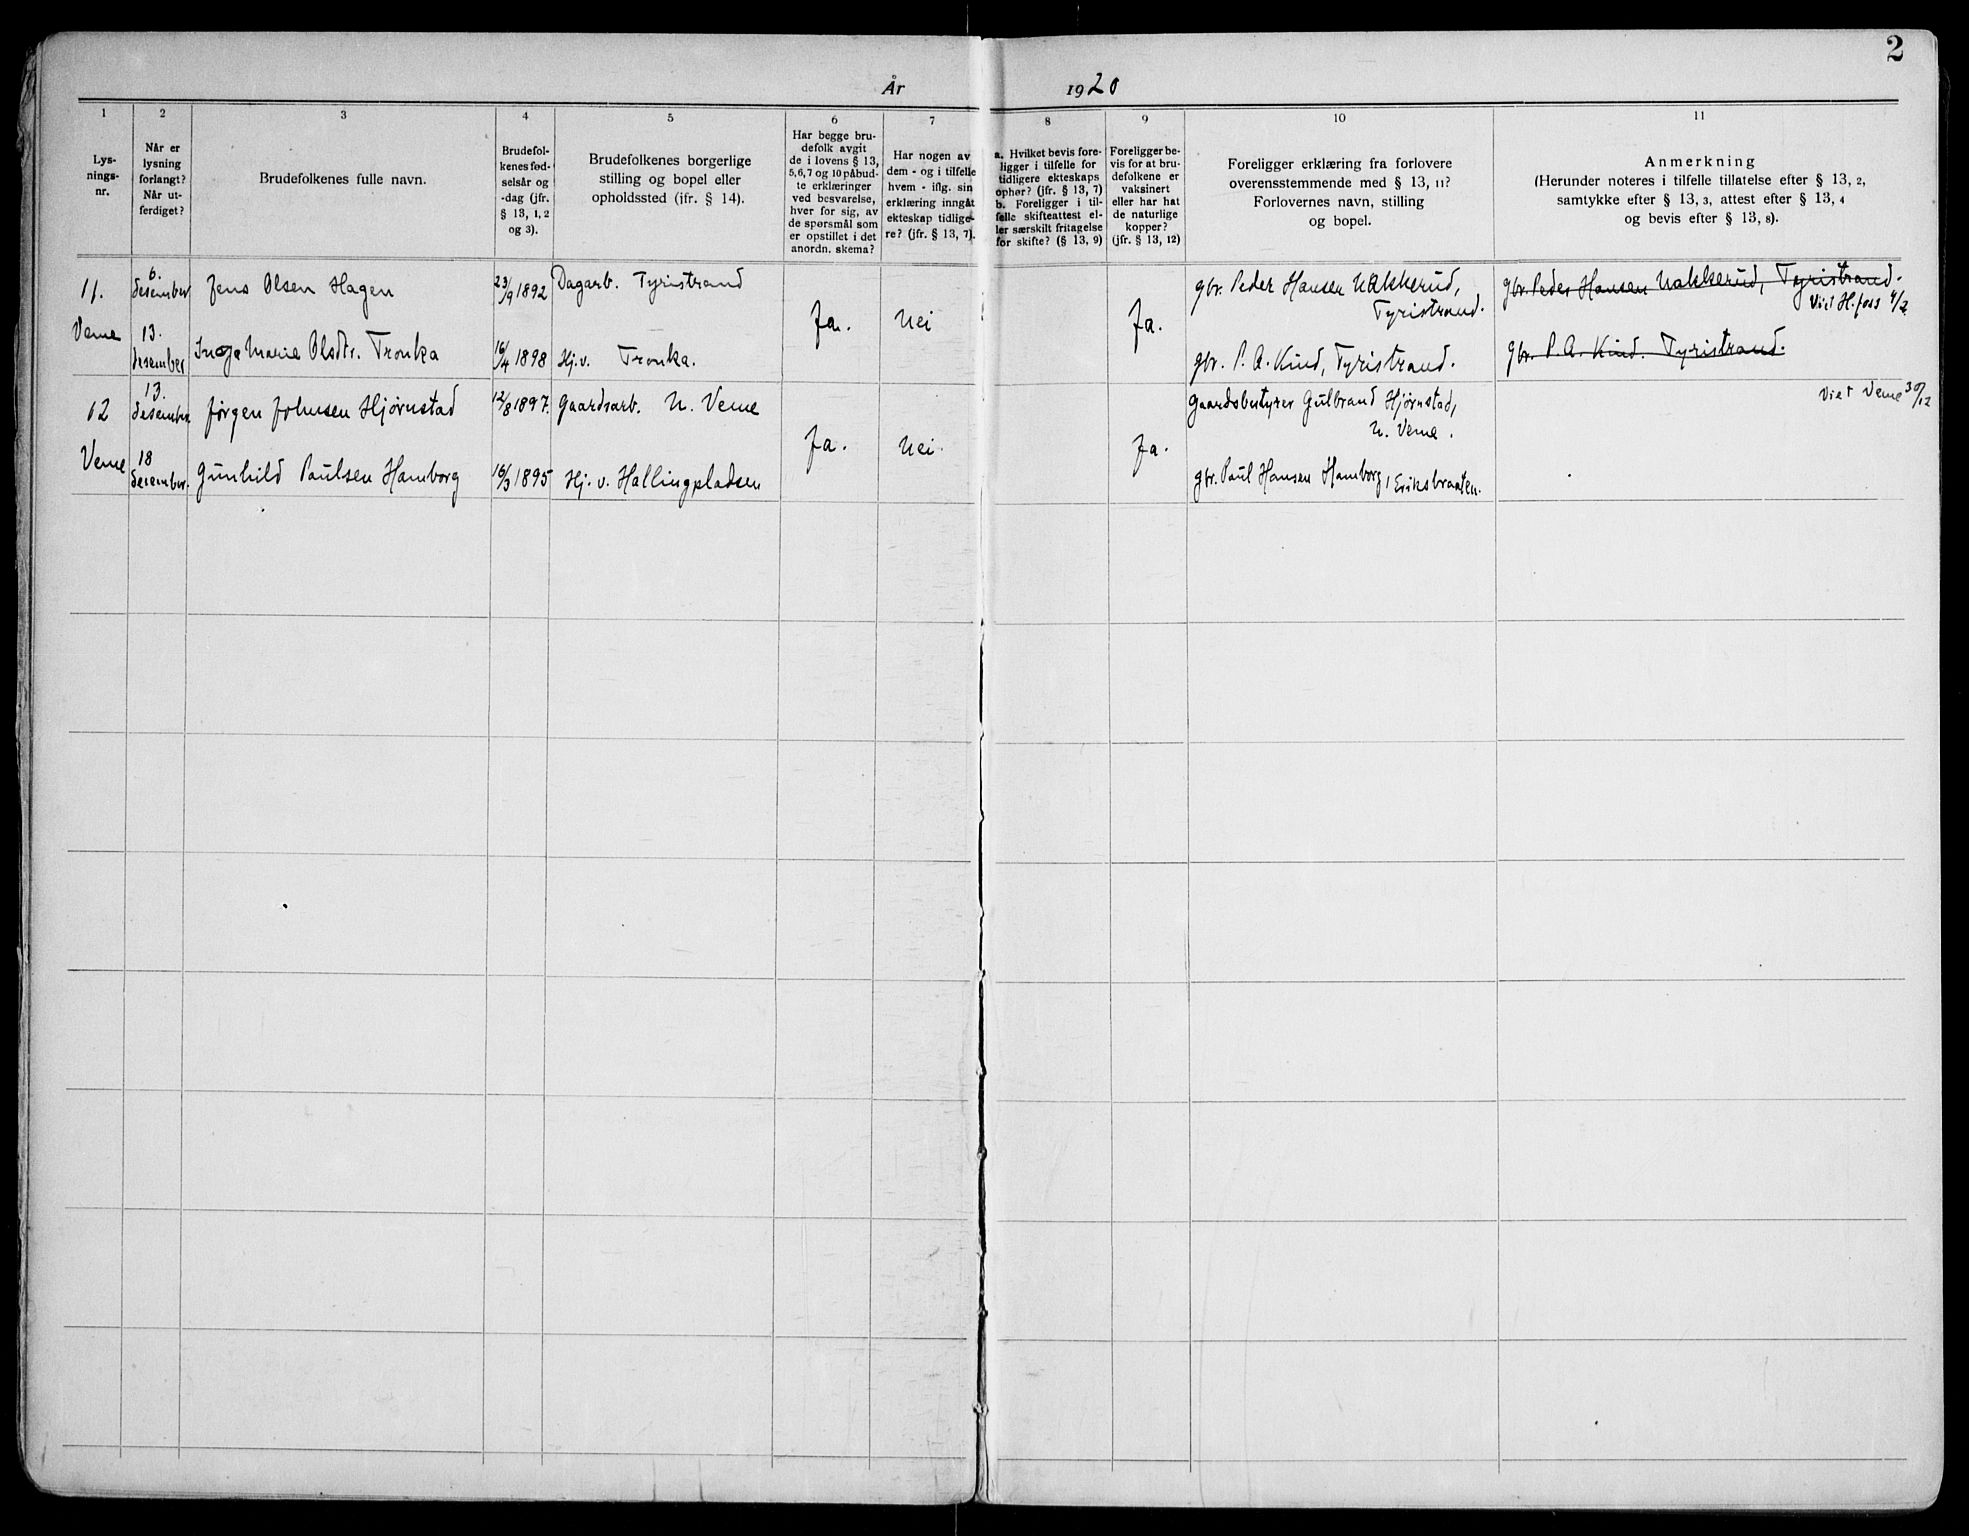 2
År 1920
1
Lys-
nings-
nr.
2
Når er
lysning
forlangt?
Når ut-
ferdiget?
3
Brudefolkenes fulle navn.
4
Brudefol-
kenes fød-
selsår og
-dag (jfr.
§ 13, 1, 2
og 3).
5
Brudefolkenes borgerlige
stilling og bopel eller
opholdssted (jfr. § 14).
6
Har begge bru-
defolk avgit
de i lovens § 13,
5,6,7 og 10 påbud-
te erklæringer
ved besvarelse,
hver for sig, av
de spørsmål som
er opstillet i det
anordn. skema?
7
Har nogen av
dem - og i tilfelle
hvem - iflg. sin
erklæring inngåt
ekteskap tidlige-
re? (jfr. § 13, 7).
8
a. Hvilket bevis fore-
ligger i tilfelle for
tidligere ekteskaps
ophør? (jfr. § 13, 7)
b. Foreligger i til-
felle skifteattest el-
ler særskilt fritagelse
for skifte? (§ 13, 9)
9
Foreligger be-
vis for at bru-
defolkene er
vaksinert
eller har hat
de naturlige
kopper?
(jfr. § 13, 12)
10
Foreligger erklæring fra forlovere
overensstemmende med § 13, 11?
Forlovernes navn, stilling
og bopel.
11
Anmerkning
(Herunder noteres i tilfelle tillatelse efter § 13, 2,
samtykke efter § 13, 3, attest efter § 13, 4
og bevis efter § 13, 8).
11.
Veme
6.
desember
13.
desember
Jens Olsen Hagen
Inga Marie Olsdtr. Tronka
23/9 1892
16/4 1898
Dagarb. Tyristrand
Hj. v. Tronka.
Ja.
Nei
Ja.
gbr. Peder Hansen Nakkerud,
Tyristrand.
gbr. P. A. Kind, Tyristrand.
gbr. Peder Hansen Nakkerud, Tyristrand.
Viet H.foss 4/2
gbr. P. A. Kind. Tyristrand.
12
Veme
13.
desember
18
desember.
Jørgen Johnsen Hjørnstad
Gunhild Paulsen Hamborg
12/8 1897.
16/3 1895
Gaardsarb. N. Veme
Hj. v. Hallingpladsen
Ja.
Nei
Ja.
Gaardsbestyrer Gulbrand Hjørnstad,
N. Veme.
gbr. Paul Hansen Hamborg, Eriksbraaten.
Viet Veme 30/12